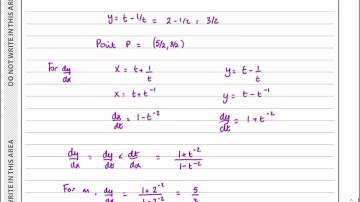 y = t - 1/t = 2 - 1/2 = 3/2
Point P = (5/2, 3/2)
For dy/dx x = t + 1/t y = t - 1/t
x = t + t⁻¹ y = t - t⁻¹
dx/dt = 1 - t⁻² dy/dt = 1 + t⁻²
dy/dx = dy/dt × dt/dx = 1+t⁻²/1-t⁻²
For m, dy/dx = 1+2⁻²/1-2⁻² = 5/3
DO NOT WRITE IN THIS AREA
WRITE IN THIS AREA